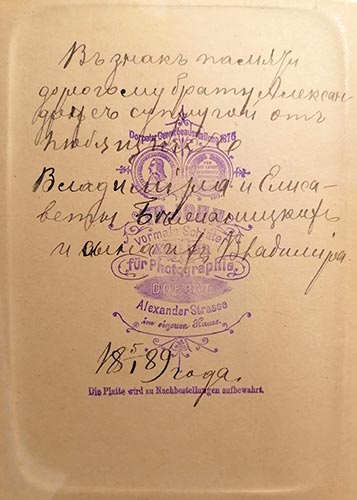 Въ знакъ памяти
дорогому брату Алексан
дру съ супругой отъ
Dorpater Gewerbeausstellung 1876
любящихъ
Владиміра и Елиса-
веты
vormals Schulten
и сына ихъ Владиміра.
für Photographie,
DORPAT
Alexander Strasse
im eigenen Hause.
18 5/I 89 года.
Die Platte wird zu Nachbestellungen aufbewahrt.